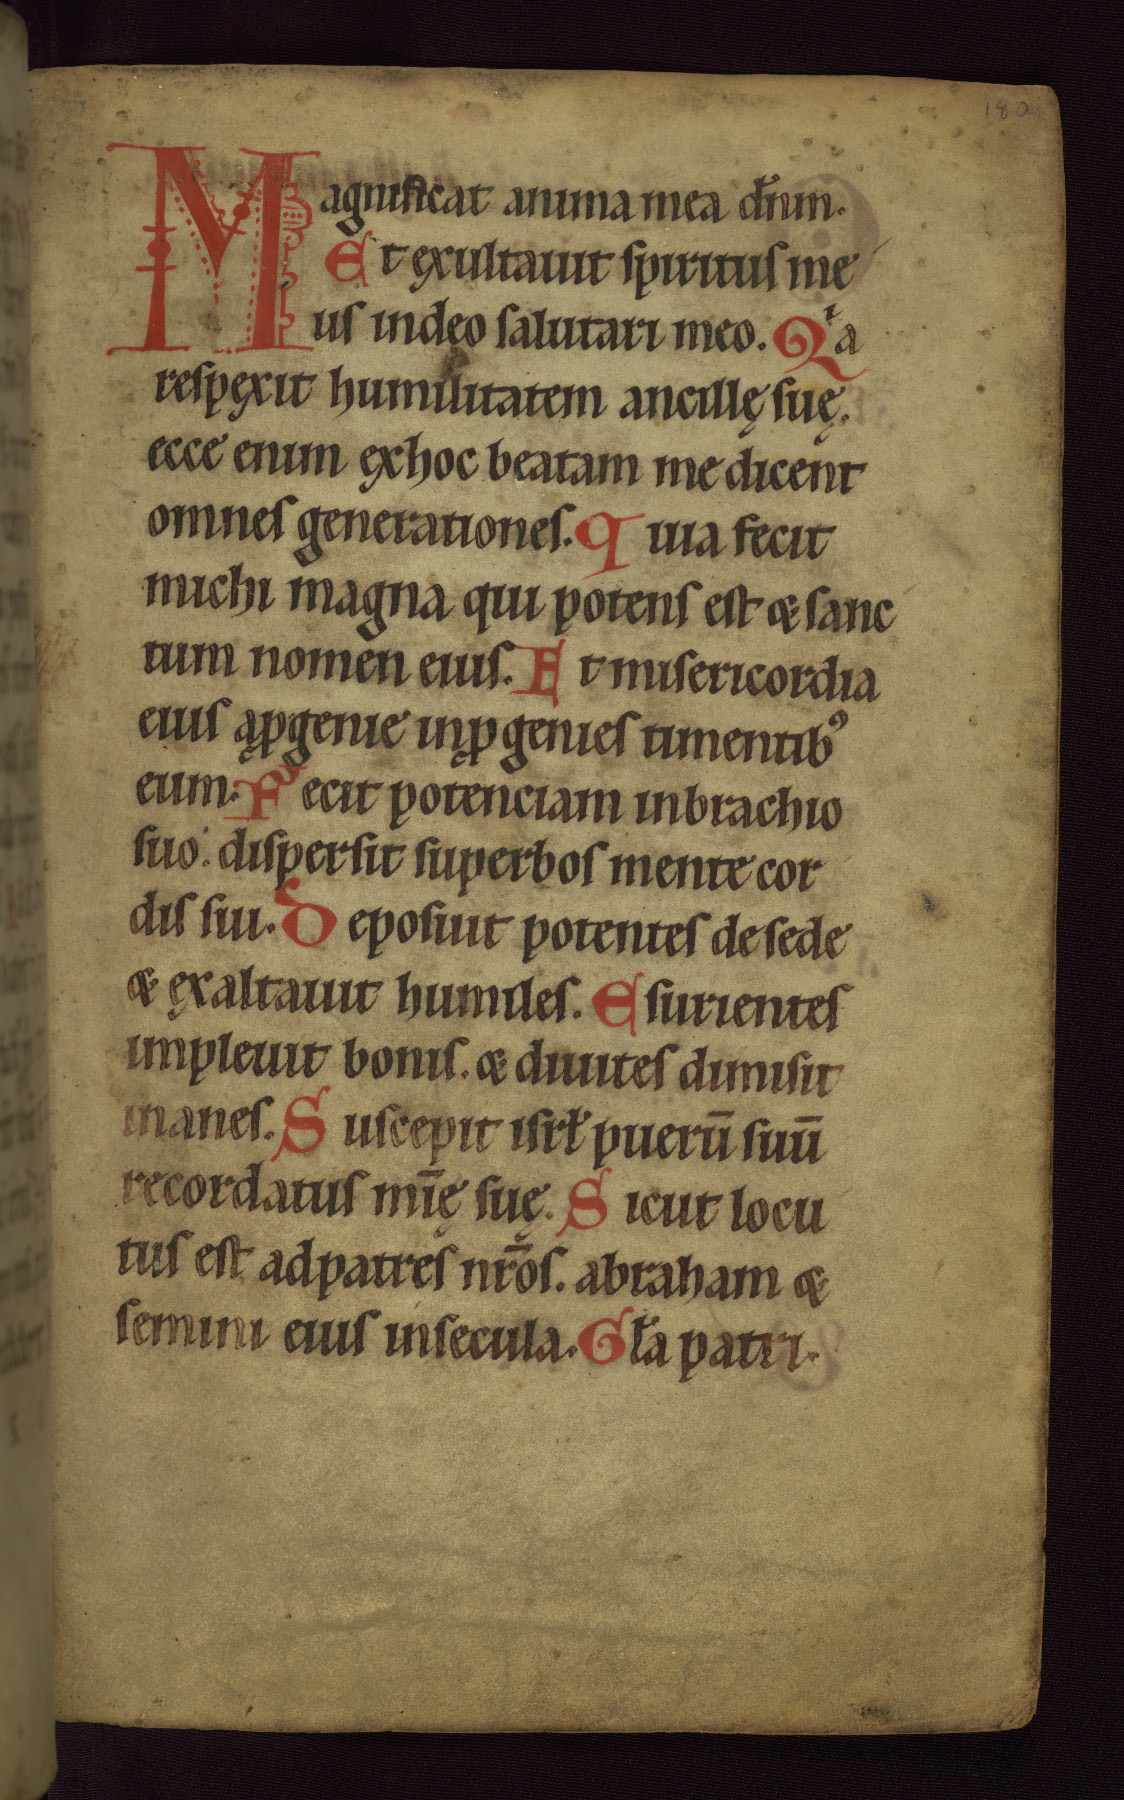 180
Magnificat anima mea dn̄m.
Et exultauit spiritus me
us indeo salutari meo. Qⁱa
respexit humilitatem ancillę suę.
ecce enim exhoc beatam me dicent
omnes generationes. Quia fecit
michi magna qui potens est & sanc
tum nomen eius. Et misericordia
eius ap̱genie inp̱genies timentibꝰ
eum. Fecit potenciam inbrachio
suo. dispersit superbos mente cor
dis sui. Deposuit potentes desede
& exaltauit humiles. Esurientes
impleuit bonis. & diuites dimisit
inanes. Suscepit isrł puerū suū
recordatus mīę suę. Sicut locu
tus est adpatres nr̄os. abraham &
semini eius insecula. Gła patri.